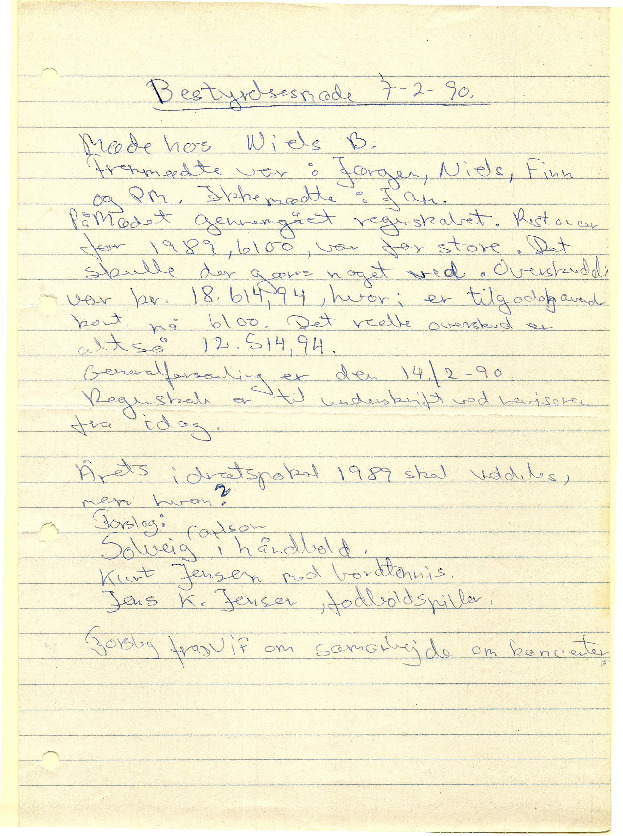 Bestyrelsesmøde 7-2-90.
Møde hos Niels B.
Fremmødte var : Jørgen, Niels, Finn
og PM. Ikkemødte : Jan.
På Mødet gennemgået regnskabet. Restancer
for 1989, 6100, var for store. Det
skulle der gøres noget ved. Overskuddet
var kr. 18.614,94, hvori er tilgodehavende
kont på 6100. Det reelle overskud er
altså 12.514,94.
Generalforsamling er den 14/2-90.
Regnskab er til underskrift ved revisoren
fra idag.
Årets idrætspokal 1989 skal uddeles,
men hvem?
Forslag:
Solveig Carlson i håndbold.
Kurt Jensen med bordtennis.
Jens K. Jensen, fodboldspiller.
Forslag fra VIF om samarbejde om koncerter